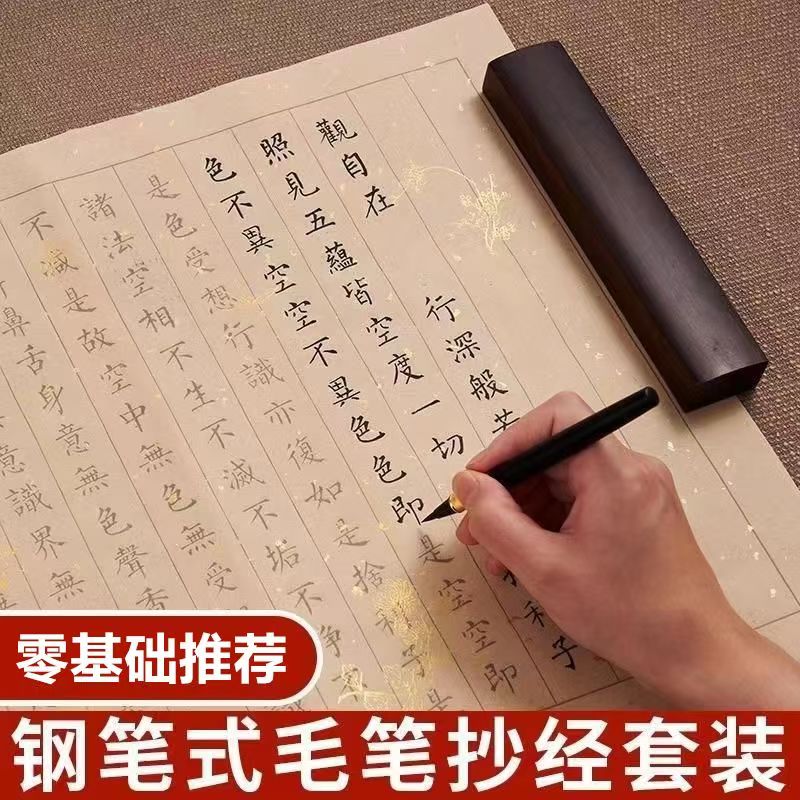 觀自在 行深般若
照見五蘊皆空度一切 利子
色不異空空不異色色即是空空即
是色受想行識亦復如是捨利子是
諸法空相不生不滅不垢不淨不
不滅是故空中無色無受
鼻舌身意無色聲香
意識界無
零基础推荐
钢笔式毛笔抄经套装